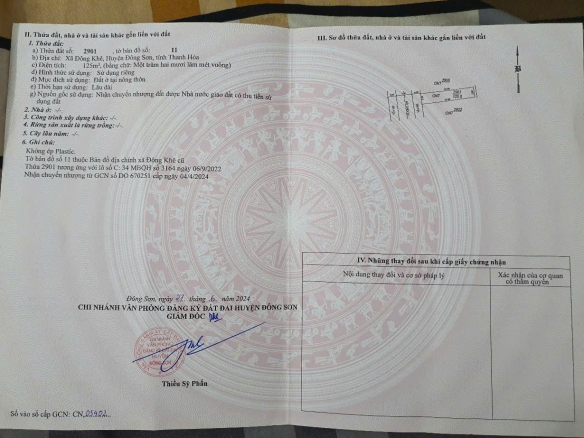 II. Thửa đất, nhà ở và tài sản khác gắn liền với đất
1. Thửa đất:
a) Thửa đất số: 2901 , tờ bản đồ số: 11
b) Địa chỉ: Xã Đông Khê, Huyện Đông Sơn, tỉnh Thanh Hóa
c) Diện tích: 125m², (bằng chữ: Một trăm hai mươi lăm mét vuông)
d) Hình thức sử dụng: Sử dụng riêng
đ) Mục đích sử dụng: Đất ở tại nông thôn
e) Thời hạn sử dụng: Lâu dài
g) Nguồn gốc sử dụng: Nhận chuyển nhượng đất được Nhà nước giao đất có thu tiền sử
dụng đất
2. Nhà ở: -/-
3. Công trình xây dựng khác: -/-
4. Rừng sản xuất là rừng trồng: -/-
5. Cây lâu năm: -/-
6. Ghi chú:
Không ép Plastic.
Tờ bản đồ số 11 thuộc Bản đồ địa chính xã Đông Khê cũ
Thửa 2901 tương ứng với lô số C: 34 MBQH số 3164 ngày 06/9/2022
Nhận chuyển nhượng từ GCN số DO 670251 cấp ngày 04/4/2024
Đông Sơn, ngày tháng năm 2024
CHI NHÁNH VĂN PHÒNG ĐĂNG KÝ ĐẤT ĐAI HUYỆN ĐÔNG SƠN
GIÁM ĐỐC
Thiều Sỹ Phấn
Số vào sổ cấp GCN: CN 05402
III. Sơ đồ thửa đất, nhà ở và tài sản khác gắn liền với đất
IV. Những thay đổi sau khi cấp giấy chứng nhận
Nội dung thay đổi và cơ sở pháp lý
Xác nhận của cơ quan
có thẩm quyền